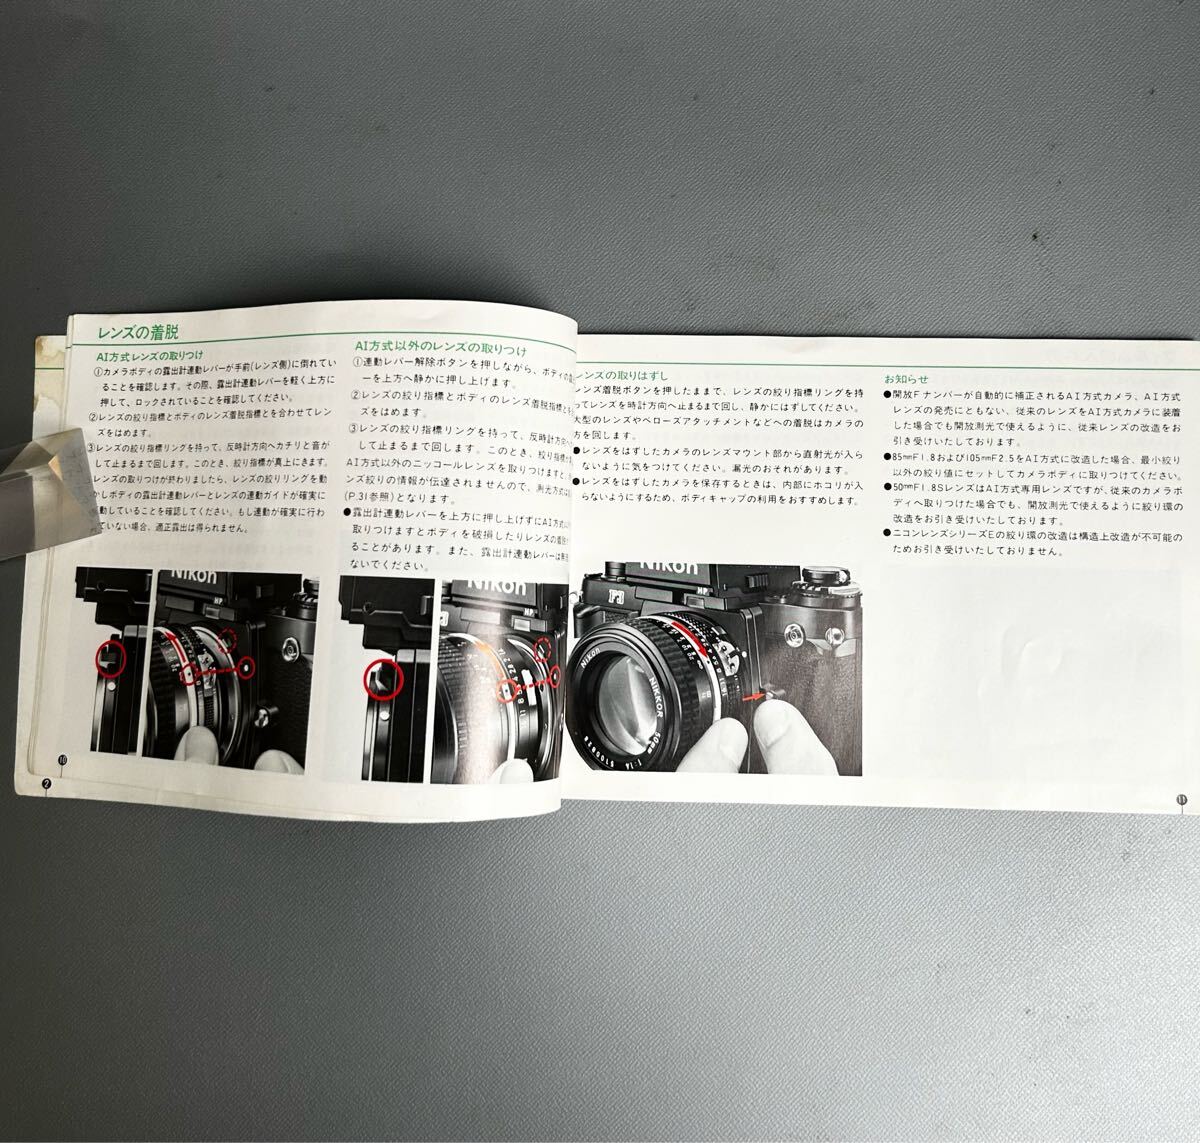 レンズの着脱
AI方式レンズの取りつけ
①カメラボディの露出計連動レバーが手前(レンズ側)に倒れてい
ることを確認します。その際、露出計連動レバーを軽く上方に
押して、ロックされていることを確認してください。
②レンズの絞り指標とボディのレンズ着脱指標とを合わせてレン
ズをはめます。
③レンズの絞り指標リングを持って、反時計方向へカチリと音が
して止まるまで回します。このとき、絞り指標が真上にきます。
レンズの取りつけが終わりましたら、レンズの絞りリングを動
かしボディの露出計連動レバーとレンズの連動ガイドが確実に
動していることを確認してください。もし連動が確実に行わ
ていない場合、適正露出は得られません。
AI方式以外のレンズの取りつけ
①連動レバー解除ボタンを押しながら、ボディの
ーを上方へ静かに押し上げます。
②レンズの絞り指標とボディのレンズ着脱指標と
ズをはめます。
③レンズの絞り指標リングを持って、反時計方向
して止まるまで回します。このとき、絞り指標が
AI方式以外のニッコールレンズを取りつけますと、
ンズ絞りの情報が伝達されませんので、測光方式は
(P.31参照)となります。
●露出計連動レバーを上方に押し上げずにAI方式
取りつけますとボディを破損したりレンズの着脱
ることがあります。また、露出計連動レバーは無
ないでください。
Nikon
HP
Nikon
HP
10
2
レンズの取りはずし
レンズ着脱ボタンを押したままで、レンズの絞り指標リングを持
ってレンズを時計方向へ止まるまで回し、静かにはずしてください。
大型のレンズやベローズアタッチメントなどへの着脱はカメラの
方を回します。
●レンズをはずしたカメラのレンズマウント部から直射光が入ら
ないように気をつけてください。漏光のおそれがあります。
●レンズをはずしたカメラを保存するときは、内部にホコリが入
らないようにするため、ボディキャップの利用をおすすめします。
Nikon
HP
F3
Nikon NIKKOR 50mm 1:1.4
お知らせ
●開放Fナンバーが自動的に補正されるAI方式カメラ、AI方式
レンズの発売にともない、従来のレンズをAI方式カメラに装着
した場合でも開放測光で使えるように、従来レンズの改造をお
引き受けいたしております。
●85mmF1.8および105mmF2.5をAI方式に改造した場合、最小絞り
以外の絞り値にセットしてカメラボディに取りつけてください。
●50mmF1.8SレンズはAI方式専用レンズですが、従来のカメラボ
ディへ取りつけた場合でも、開放測光で使えるように絞り環の
改造をお引き受けいたしております。
●ニコンレンズシリーズEの絞り環の改造は構造上改造が不可能の
ためお引き受けいたしておりません。
11